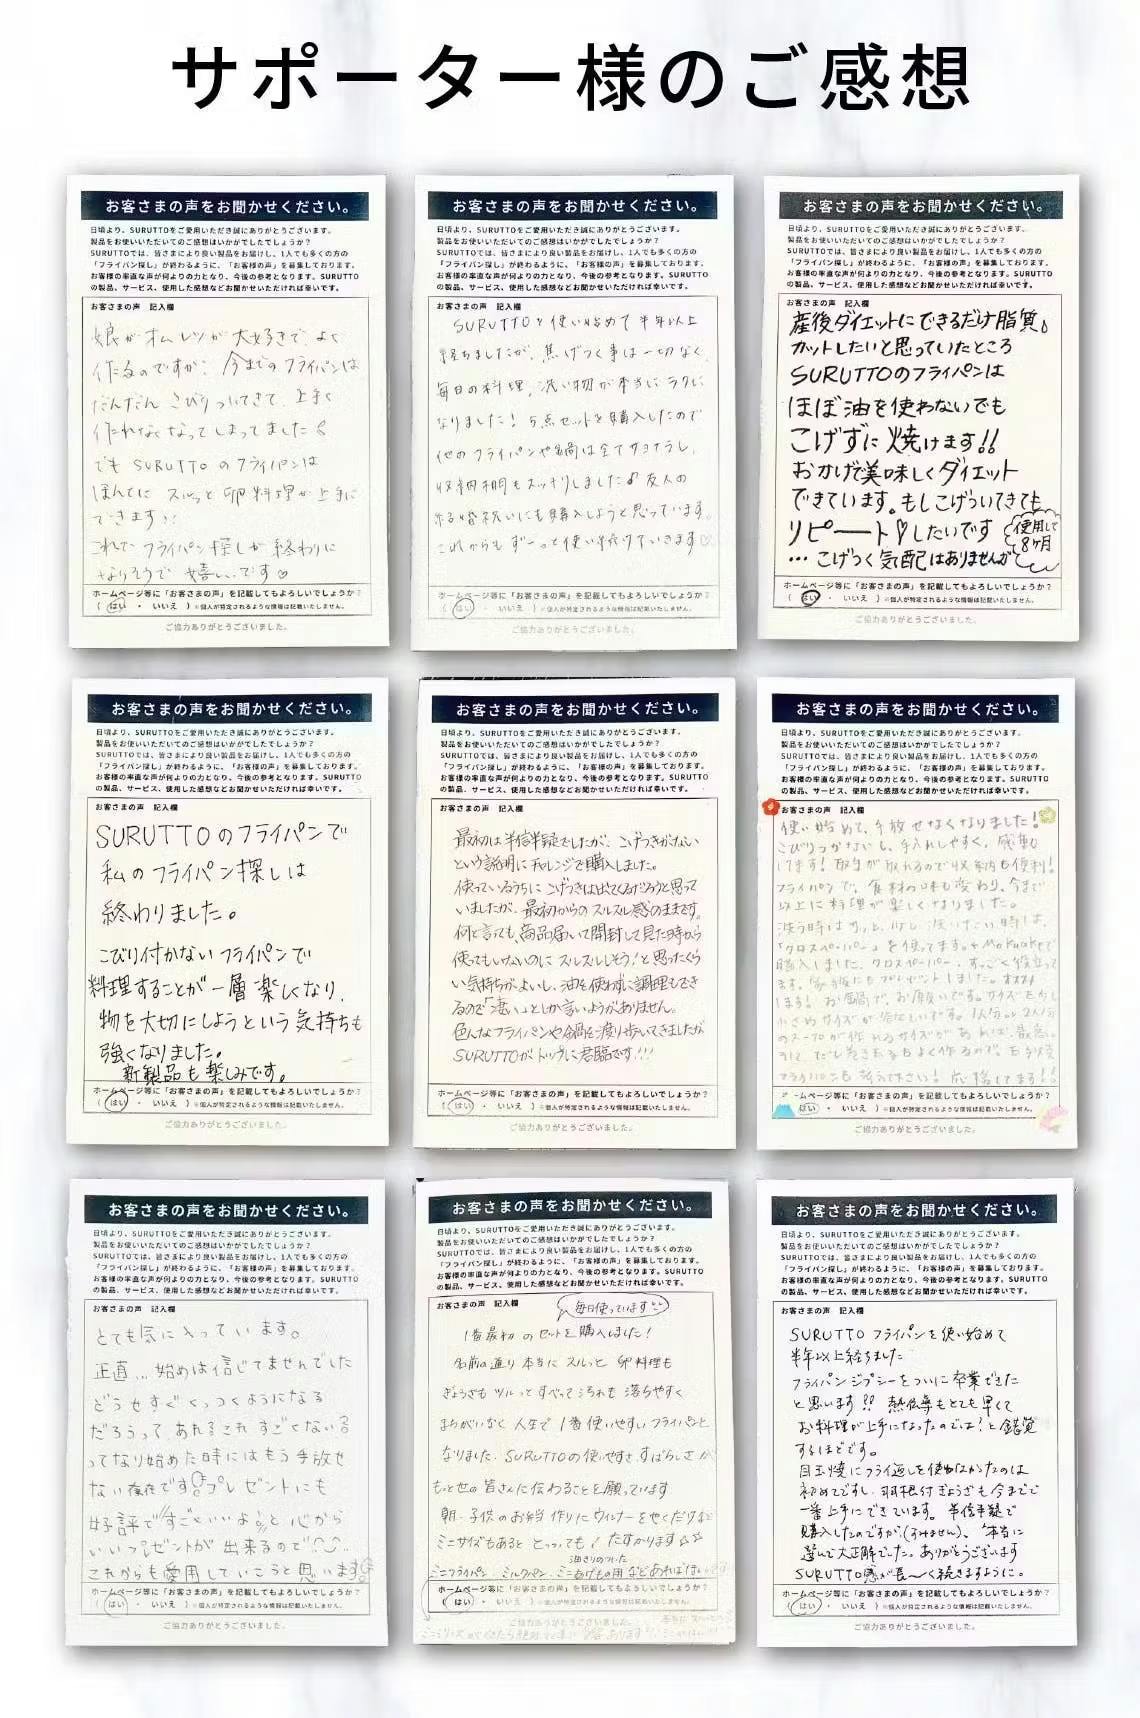 サポーター様のご感想
お客さまの声をお聞かせください。
日頃より、SURUTTOをご愛用いただき誠にありがとうございます。
製品をお使いいただいてのご感想はいかがでしたでしょうか？
SURUTTOでは、皆さまにより良い製品をお届けし、1人でも多くの方の
「フライパン探し」が終わるように、「お客様の声」を募集しております。
お客様の率直な声が何よりの力となり、今後の参考となります。SURUTTO
の製品、サービス、使用した感想などお聞かせいただければ幸いです。
お客さまの声 記入欄
娘がオムレツが大好きで、よく
作るのですが、今までのフライパンは
だんだんこびりついてきて 上手く
作れなくなってしまってました
でも SURUTTO のフライパンは
ほんとに スルッと 卵料理が上手に
できます!!
これで フライパン探しが 終わりに
なりそうで 嬉しいです♡
ホームページ等に「お客さまの声」を記載してもよろしいでしょうか？
（ はい ・ いいえ ）※個人が特定されるような情報は記載いたしません。
ご協力ありがとうございました。
お客さまの声をお聞かせください。
日頃より、SURUTTOをご愛用いただき誠にありがとうございます。
製品をお使いいただいてのご感想はいかがでしたでしょうか？
SURUTTOでは、皆さまにより良い製品をお届けし、1人でも多くの方の
「フライパン探し」が終わるように、「お客様の声」を募集しております。
お客様の率直な声が何よりの力となり、今後の参考となります。SURUTTO
の製品、サービス、使用した感想などお聞かせいただければ幸いです。
お客さまの声 記入欄
SURUTTOを使い始めて半年以上
経ちましたが、焦げつく事は一切なく、
毎日の料理、洗い物が本当にラクに
なりました！ 5点セットを購入したので
他のフライパンや鍋は全てサヨナラし、
収納棚もスッキリしました♪ 友人の
結婚祝いにも購入しようと思っています。
これからもず〜っと使い続けていきます♡
ホームページ等に「お客さまの声」を記載してもよろしいでしょうか？
（ はい ・ いいえ ）※個人が特定されるような情報は記載いたしません。
ご協力ありがとうございました。
お客さまの声をお聞かせください。
日頃より、SURUTTOをご愛用いただき誠にありがとうございます。
製品をお使いいただいてのご感想はいかがでしたでしょうか？
SURUTTOでは、皆さまにより良い製品をお届けし、1人でも多くの方の
「フライパン探し」が終わるように、「お客様の声」を募集しております。
お客様の率直な声が何よりの力となり、今後の参考となります。SURUTTO
の製品、サービス、使用した感想などお聞かせいただければ幸いです。
お客さまの声 記入欄
産後ダイエットにできるだけ脂質
カットしたいと思っていたところ
SURUTTOのフライパンは
ほぼ油を使わないでも
こげずに焼けます!!
おかげで美味しくダイエット
できています。もしこげついてきても
リピート♡したいです
使用して
8ヶ月
… こげつく気配はありませんが
ホームページ等に「お客さまの声」を記載してもよろしいでしょうか？
（ はい ・ いいえ ）※個人が特定されるような情報は記載いたしません。
ご協力ありがとうございました。
お客さまの声をお聞かせください。
日頃より、SURUTTOをご愛用いただき誠にありがとうございます。
製品をお使いいただいてのご感想はいかがでしたでしょうか？
SURUTTOでは、皆さまにより良い製品をお届けし、1人でも多くの方の
「フライパン探し」が終わるように、「お客様の声」を募集しております。
お客様の率直な声が何よりの力となり、今後の参考となります。SURUTTO
の製品、サービス、使用した感想などお聞かせいただければ幸いです。
お客さまの声 記入欄
SURUTTOのフライパンで
私のフライパン探しは
終わりました。
こびり付かないフライパンで
料理することが一層楽しくなり、
物を大切にしようという気持ちも
強くなりました。
新製品も楽しみです。
ホームページ等に「お客さまの声」を記載してもよろしいでしょうか？
（ はい ・ いいえ ）※個人が特定されるような情報は記載いたしません。
ご協力ありがとうございました。
お客さまの声をお聞かせください。
日頃より、SURUTTOをご愛用いただき誠にありがとうございます。
製品をお使いいただいてのご感想はいかがでしたでしょうか？
SURUTTOでは、皆さまにより良い製品をお届けし、1人でも多くの方の
「フライパン探し」が終わるように、「お客様の声」を募集しております。
お客様の率直な声が何よりの力となり、今後の参考となります。SURUTTO
の製品、サービス、使用した感想などお聞かせいただければ幸いです。
お客さまの声 記入欄
最初は半信半疑でしたが、こげつきがない
という説明にチャレンジで購入しました。
使っているうちにこげつきは出てくるだろうと思って
いましたが、最初からのスルスル感のままです。
何と言っても、商品届いて開封して見た時から
使ってもいないのにスルスルしそう！と思ったくら
い気持ちがよいし、油を使わずに調理もでき
るので「凄い」としか言いようがありません。
色んなフライパンや鍋を渡り歩いてきましたが
SURUTTOがトップに君臨です!!!
ホームページ等に「お客さまの声」を記載してもよろしいでしょうか？
（ はい ・ いいえ ）※個人が特定されるような情報は記載いたしません。
ご協力ありがとうございました。
お客さまの声をお聞かせください。
日頃より、SURUTTOをご愛用いただき誠にありがとうございます。
製品をお使いいただいてのご感想はいかがでしたでしょうか？
SURUTTOでは、皆さまにより良い製品をお届けし、1人でも多くの方の
「フライパン探し」が終わるように、「お客様の声」を募集しております。
お客様の率直な声が何よりの力となり、今後の参考となります。SURUTTO
の製品、サービス、使用した感想などお聞かせいただければ幸いです。
お客さまの声 記入欄
使い始めて、手放せなくなりました！
こびりつかないし、手入れしやすく、感動
してます！取手が取れるので収納も便利！
フライパンで、食材の味も変わり、今まで
以上に料理が楽しくなりました。
洗う時はサッと、少し洗いたい時は、
「クロスペーパー」を使ってます。Makuakeで
購入しました。クロスペーパー、すっごく役立って
ます。家族にもプレゼントしました。
します！お鍋で、お願いです。サイズをもう少し
小さめサイズが欲しいです。1人分〜2人分
のスープが作れるサイズがあれば、最高
です。だし巻きたまごもよく作るので、玉子焼
フライパンも 下さい！応援してます!!
ホームページ等に「お客さまの声」を記載してもよろしいでしょうか？
（ はい ・ いいえ ）※個人が特定されるような情報は記載いたしません。
ご協力ありがとうございました。
お客さまの声をお聞かせください。
日頃より、SURUTTOをご愛用いただき誠にありがとうございます。
製品をお使いいただいてのご感想はいかがでしたでしょうか？
SURUTTOでは、皆さまにより良い製品をお届けし、1人でも多くの方の
「フライパン探し」が終わるように、「お客様の声」を募集しております。
お客様の率直な声が何よりの力となり、今後の参考となります。SURUTTO
の製品、サービス、使用した感想などお聞かせいただければ幸いです。
お客さまの声 記入欄
とても気に入っています。
正直…始めは信じてませんでした
どうせすぐくっつくようになる
だろうって あれ？これすごくない？
ってなり始めた時にはもう手放せ
ない存在です プレゼントにも
好評で"すごくいいよ"と心から
いいプレゼントが出来るので
これからも愛用していこうと思います
ホームページ等に「お客さまの声」を記載してもよろしいでしょうか？
（ はい ・ いいえ ）※個人が特定されるような情報は記載いたしません。
ご協力ありがとうございました。
お客さまの声をお聞かせください。
日頃より、SURUTTOをご愛用いただき誠にありがとうございます。
製品をお使いいただいてのご感想はいかがでしたでしょうか？
SURUTTOでは、皆さまにより良い製品をお届けし、1人でも多くの方の
「フライパン探し」が終わるように、「お客様の声」を募集しております。
お客様の率直な声が何よりの力となり、今後の参考となります。SURUTTO
の製品、サービス、使用した感想などお聞かせいただければ幸いです。
お客さまの声 記入欄
毎日使っています
1番最初のセットを購入しました！
名前の通り本当にスルッと 卵料理も
ぎょうざも ツルッとすべって汚れも落ちやすく
まちがいなく 人生で1番使いやすいフライパンと
なりました。SURUTTOの使いやすさ、すばらしさが
もっと世の皆さんに伝わることを願っています
朝、子供のお弁当作りにウィンナーをやくだけなど
ミニサイズもあると とっても！たすかります☆☆
油きりのついた
ミニフライパン、ミルクパン、ミニあげもの用などあれば
ホームページ等に「お客さまの声」を記載してもよろしいでしょうか？
（ はい ・ いいえ ）※個人が特定されるような情報は記載いたしません。
ご協力ありがとうございました。
お客さまの声をお聞かせください。
日頃より、SURUTTOをご愛用いただき誠にありがとうございます。
製品をお使いいただいてのご感想はいかがでしたでしょうか？
SURUTTOでは、皆さまにより良い製品をお届けし、1人でも多くの方の
「フライパン探し」が終わるように、「お客様の声」を募集しております。
お客様の率直な声が何よりの力となり、今後の参考となります。SURUTTO
の製品、サービス、使用した感想などお聞かせいただければ幸いです。
お客さまの声 記入欄
SURUTTO フライパンを使い始めて
半年以上経ちました
フライパンジプシーをついに卒業できた
と思います!! 熱伝導もとても早くて
お料理が上手になったのでは！と錯覚
するほどです。
目玉焼にフライ返しを使わなかったのは
初めてですし、羽根付ぎょうざも今までで
一番上手にできています。半信半疑で
購入したのですが、(すみません)、本当に
選んで大正解でした。ありがとうございます
SURUTTO感が長〜く続きますように。
ホームページ等に「お客さまの声」を記載してもよろしいでしょうか？
（ はい ・ いいえ ）※個人が特定されるような情報は記載いたしません。
ご協力ありがとうございました。